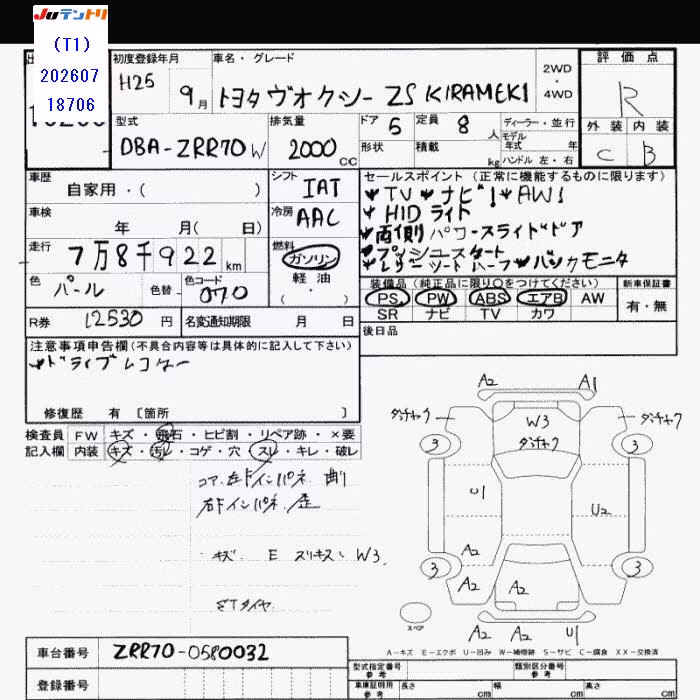 JUテントリ
(T1)
202607
18706
初度登録年月 車名・グレード 2WD・4WD 評価点
H25 9月 トヨタ ヴォクシー ZS KIRAMEKI R
型式 排気量 ドア 5 定員 8人 ディーラー・並行 外装 内装
DBA-ZRR70W 2000CC 形状 積載 kg モデル年式 年 ハンドル 左・右 C B
車歴 シフト セールスポイント (正常に機能するものに限ります)
自家用・( ) IAT TV ナビ AW
車検 冷房 HID ライト
年 月(日) AAC 両側パワースライドドア
走行 燃料 プッシュスタート
7万8千922km ガソリン レザーシートハーフ バックモニタ
色 色替 色コード 軽油 装備品 (純正品に限り○をつけてください) 新車保証書
パール 070 (・) PS PW ABS エアB AW 有・無
SR ナビ TV カワ
R券 12530円 名変通知期限 月 日 後日品
注意事項申告欄 (不具合内容等は具体的に記入して下さい)
ドライブレコーダー
修復歴 有 〔箇所 〕
検査員 FW キズ・飛石・ヒビ割・リペア跡・×要
記入欄 内装 キズ・汚レ・コゲ・穴・スレ・キレ・破レ
コア 左ドインパネ 曲り
右ドインパネ 歪
キズ E スリキズ W3
A2 A1
ダッチャク ダッチャク
W3
ダッチャク
3 3
U1 U2
A2 A2
3 3
A2 A2
スペア
A2 A2 U1
A-キズ E-エクボ U-凹み W-補修跡 S-サビ C-腐食 XX-交換済
車台番号 ZRR70-0580032
登録番号
型式指定番号 参考 類別区分番号 参考
車庫証明用 参考 長さ cm 幅 cm 高さ cm